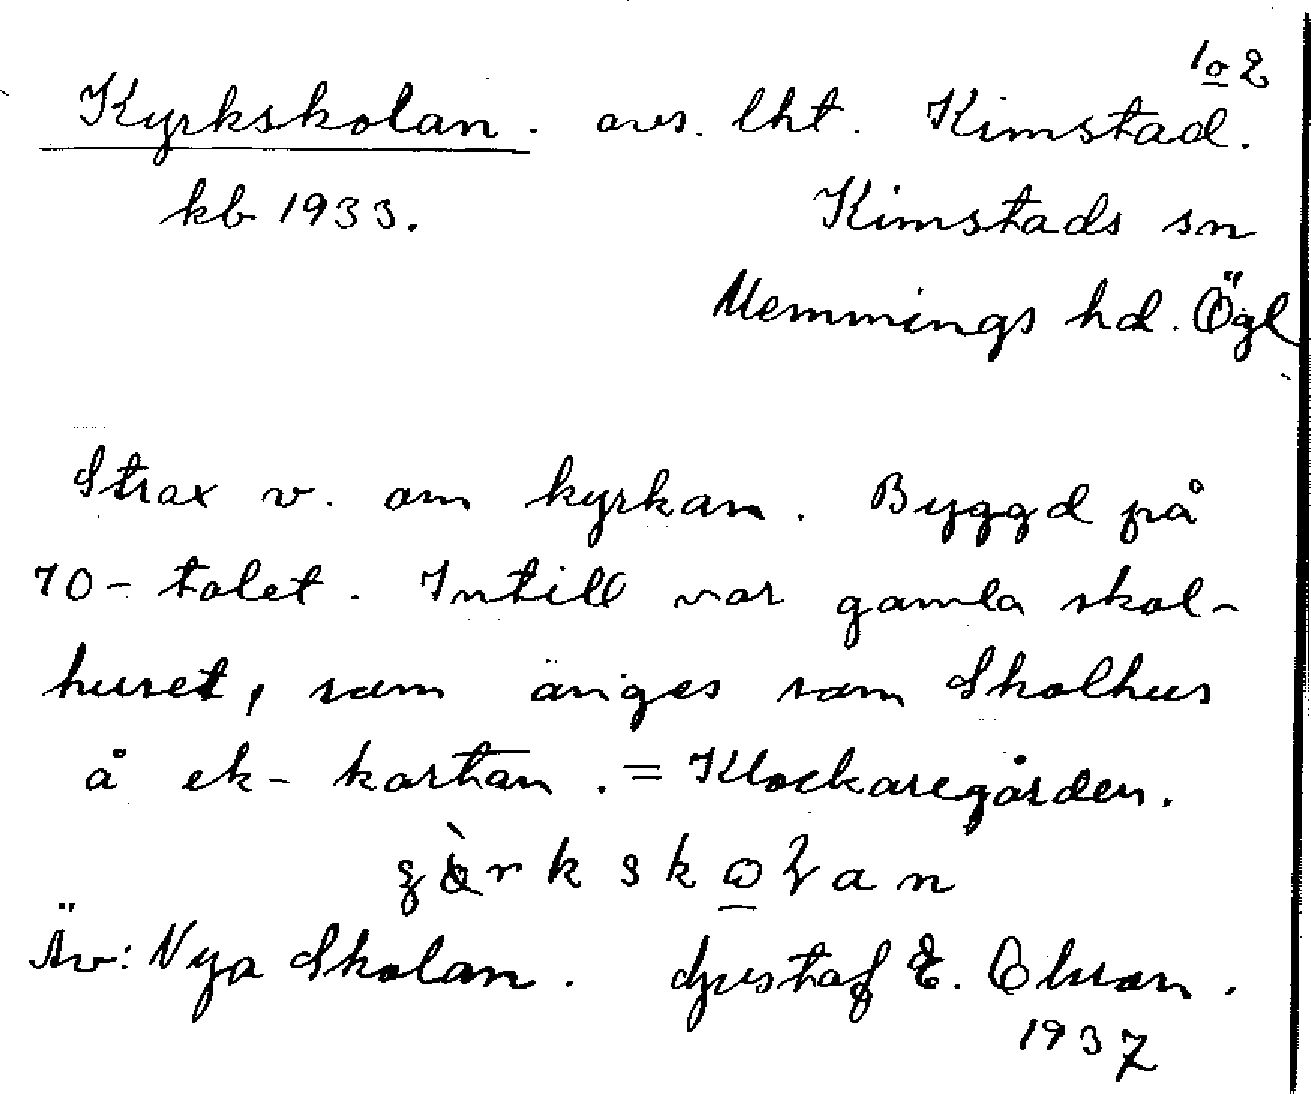 1 o 2
Kyrkskolan. avs. lht. Kimstad.
kb 1933. Kimstads sn
Memmings hd. Ögl
Strax v. om kyrkan. Byggd på
70-talet. Intill var gamla skol-
huset, som anges som Skolhus
å ek-kartan. = Klockaregården.
Äv: Nya Skolan. Gustaf E. Olsson.
1937